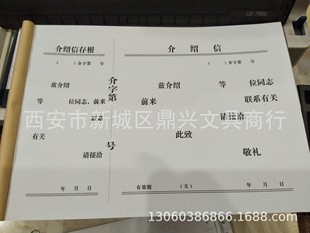 介绍信存根
（ ）介字第 号
兹介绍
等 位同志，前来
有关
请接洽
年 月 日
介字第
号
介绍信
（ ）介字第 号
兹介绍 等 位同志
前来 联系有关
请接洽
此致
敬礼
年 月 日
有效期 （天）
西安市新城区鼎兴文具商行
13060386866.1688.com